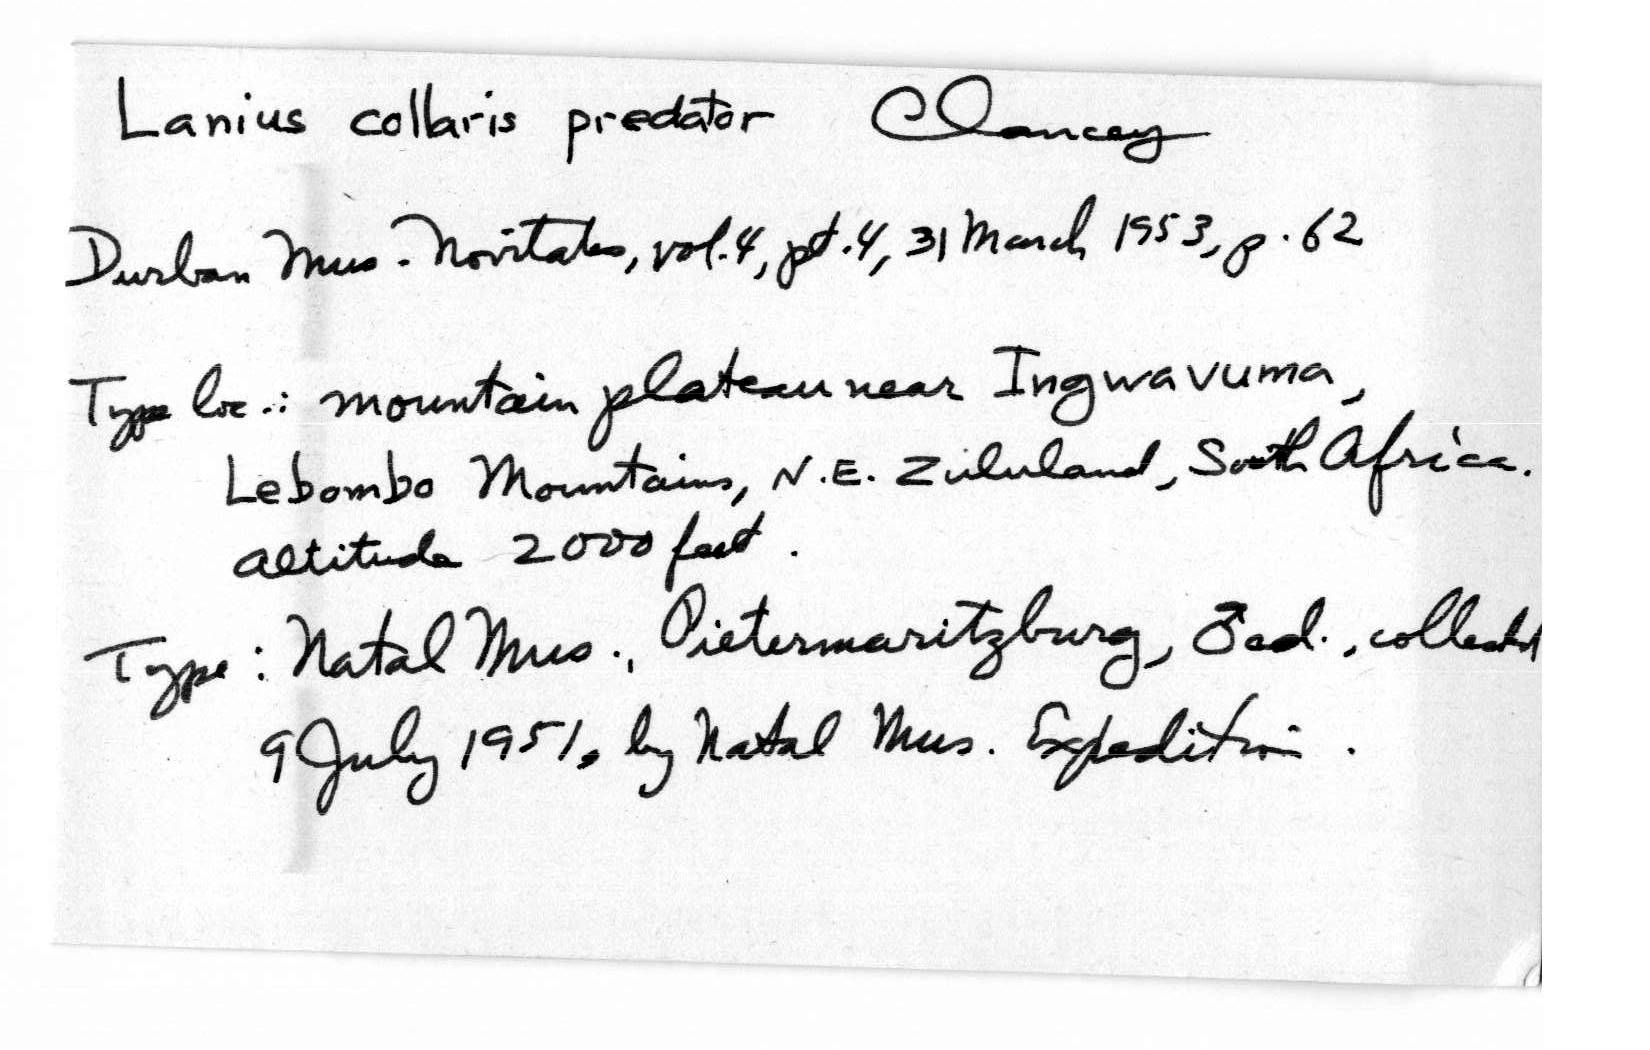 Lanius collaris predator Clancey
Durban Mus. Novitates, vol. 4, pt. 4, 31 March 1953, p. 62
Type loc.: mountain plateau near Ingwavuma,
Lebombo Mountains, N.E. Zululand, South Africa.
altitude 2000 feet.
Type: Natal Mus., Pietermaritzburg, ♂ ad., collected
9 July 1951, by Natal Mus. Expedition.